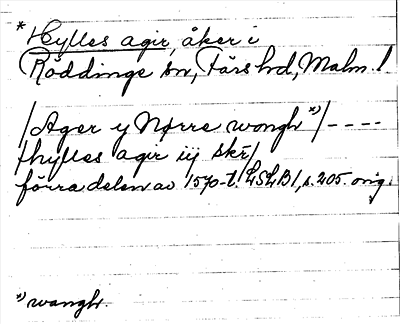 * Hylles agir, åker i
Röddinge sn, Färs hd, Malm. l.
/Ager y Nørre wongh *)/ ----
/hylles agir iij skr/
förra delen av 1570-t. LSLB1, s. 205. orig.
*) wangh.